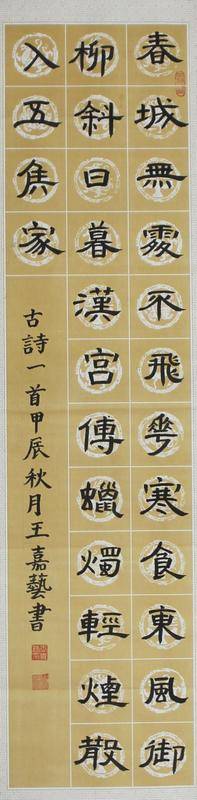 春城無處不飛花寒食東風御
柳斜日暮漢宮傳蠟燭輕煙散
入五焦家
古詩一首甲辰秋月王嘉藝書